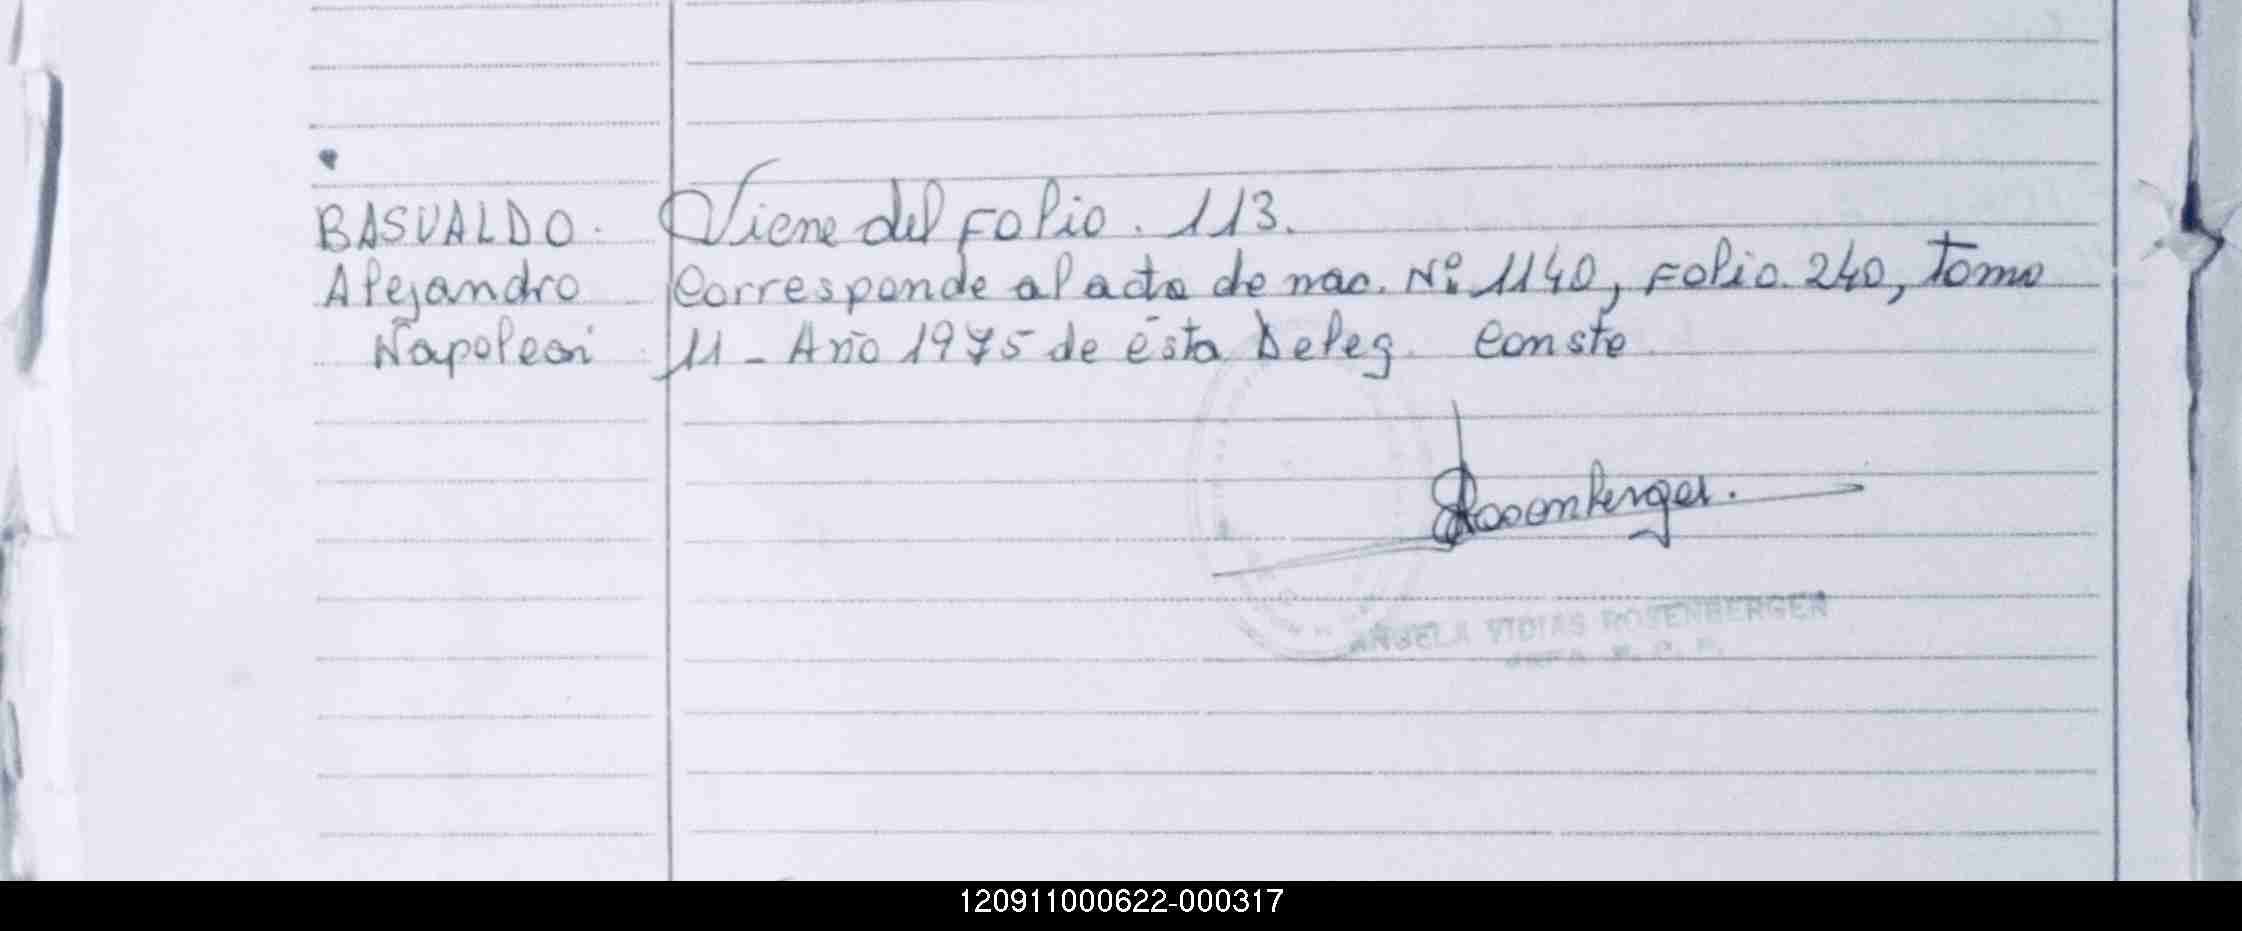 BASUALDO.
Alejandro
Napoleon
Viene del Folio. 113.
Corresponde al acta de nac. Nº 1140, Folio. 240, Tomo
11 - Año 1975 de ésta Deleg. Conste
Rosenberger.
ROSENBERGER
120911000622-000317